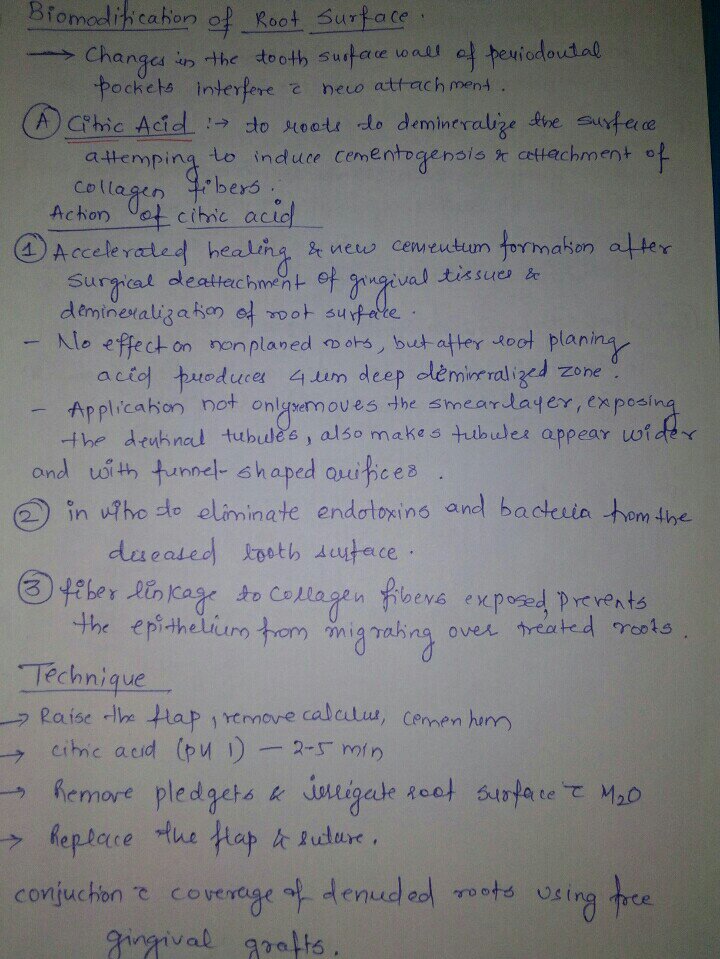 Biomodification of Root Surface.
→ Changes in the tooth surface wall of periodontal
pockets interfere c̄ new attachment.
Ⓐ Citric Acid :→ to roots to demineralize the surface
attemping to induce cementogensis & attachment of
collagen fibers.
Action of citric acid
① Accelerated healing & new cementum formation after
surgical deattachment of gingival tissues &
demineralization of root surface.
- No effect on nonplaned roots, but after root planing
acid produces 4 um deep demineralized zone.
- Application not only removes the smear layer, exposing
the dentinal tubules, also makes tubules appear wider
and with funnel-shaped orifices.
② in vitro to eliminate endotoxins and bacteria from the
diseased tooth surface.
③ fiber linkage to collagen fibers exposed, prevents
the epithelium from migrating over treated roots.
Technique
→ Raise the flap, remove calculus, cementum
→ citric acid (pH 1) — 2-5 min
→ Remove pledgets & irrigate root surface c̄ H2O
→ Replace the flap & suture.
conjuction c̄ coverage of denuded roots using free
gingival grafts.